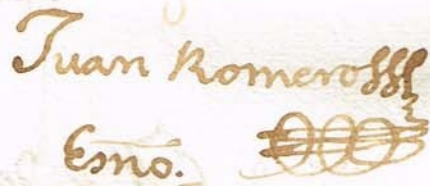 Juan Romero
Essno.